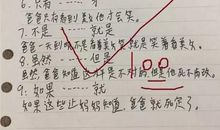 6. 只有……才
爸爸只有看到美女他才会笑。
7. 不是……就是
爸爸一天到晚不是看着美女笑就是笑着看美女。
8. 虽然……但是
虽然爸爸知道这样是不对的,但是他死不悔改。
9. 如果……就
如果这些让妈妈知道,爸爸就死定了。
100